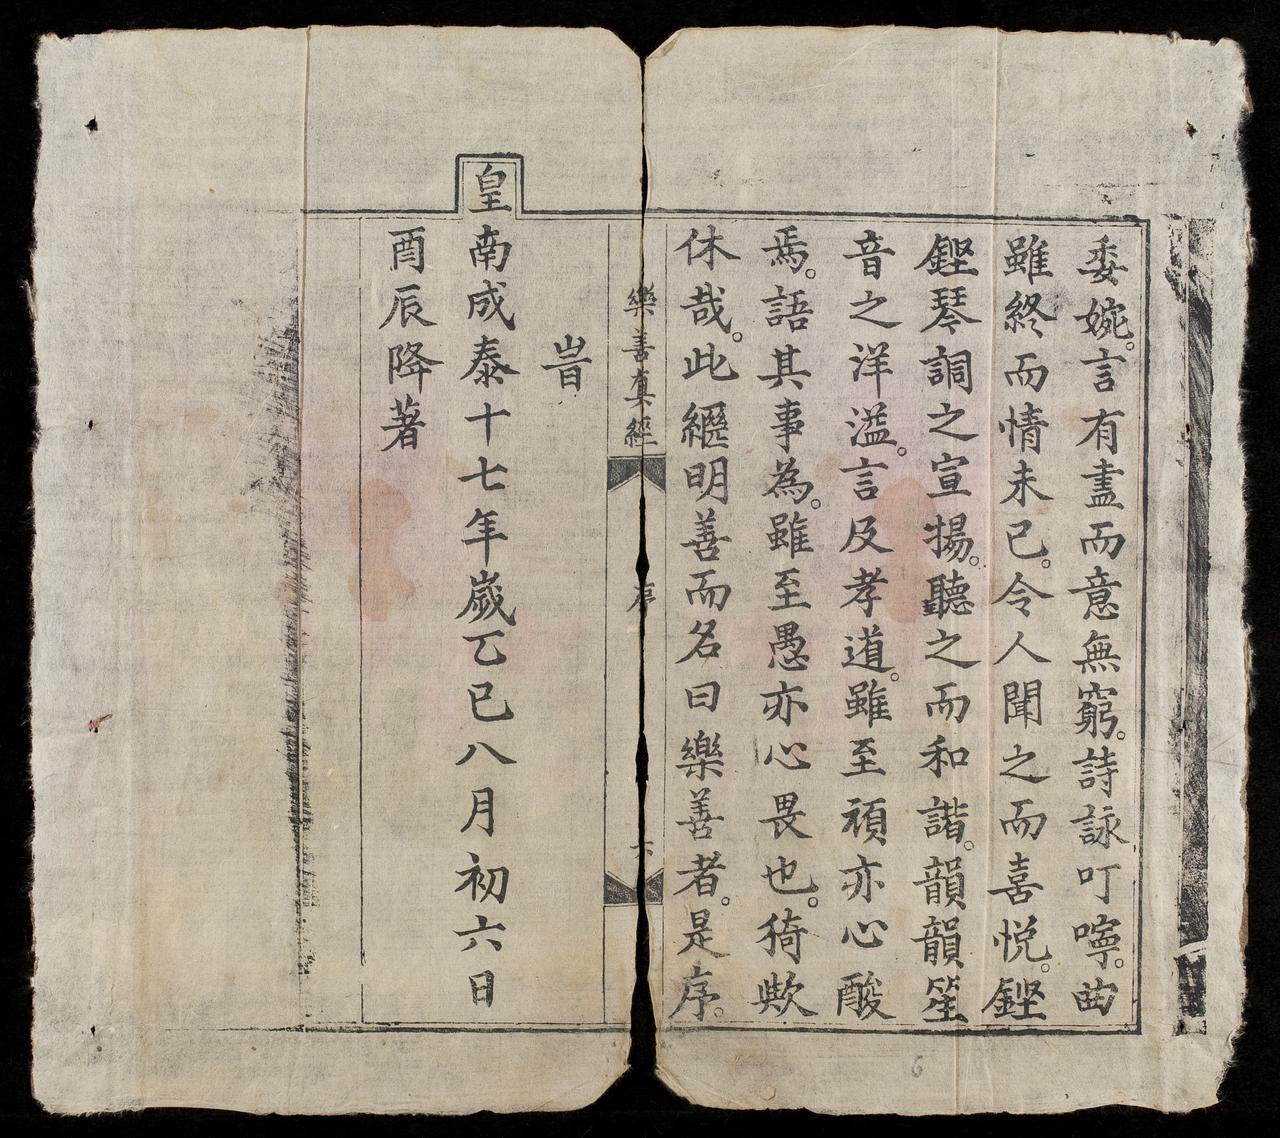 委婉。言有盡而意無窮。詩詠叮嚀。曲
雖終而情未已。令人聞之而喜悅。鏗
鏗琴詞之宣揚。聽之而和諧。韻韻笙
音之洋溢。言及孝道。雖至頑亦心酸
焉。語其事為。雖至愚亦心畏也。猗歟
休哉。此繼明善而名曰樂善者。是序。
樂善真經
序
六
旹
皇南成泰十七年歲乙巳八月初六日
酉辰降著
6